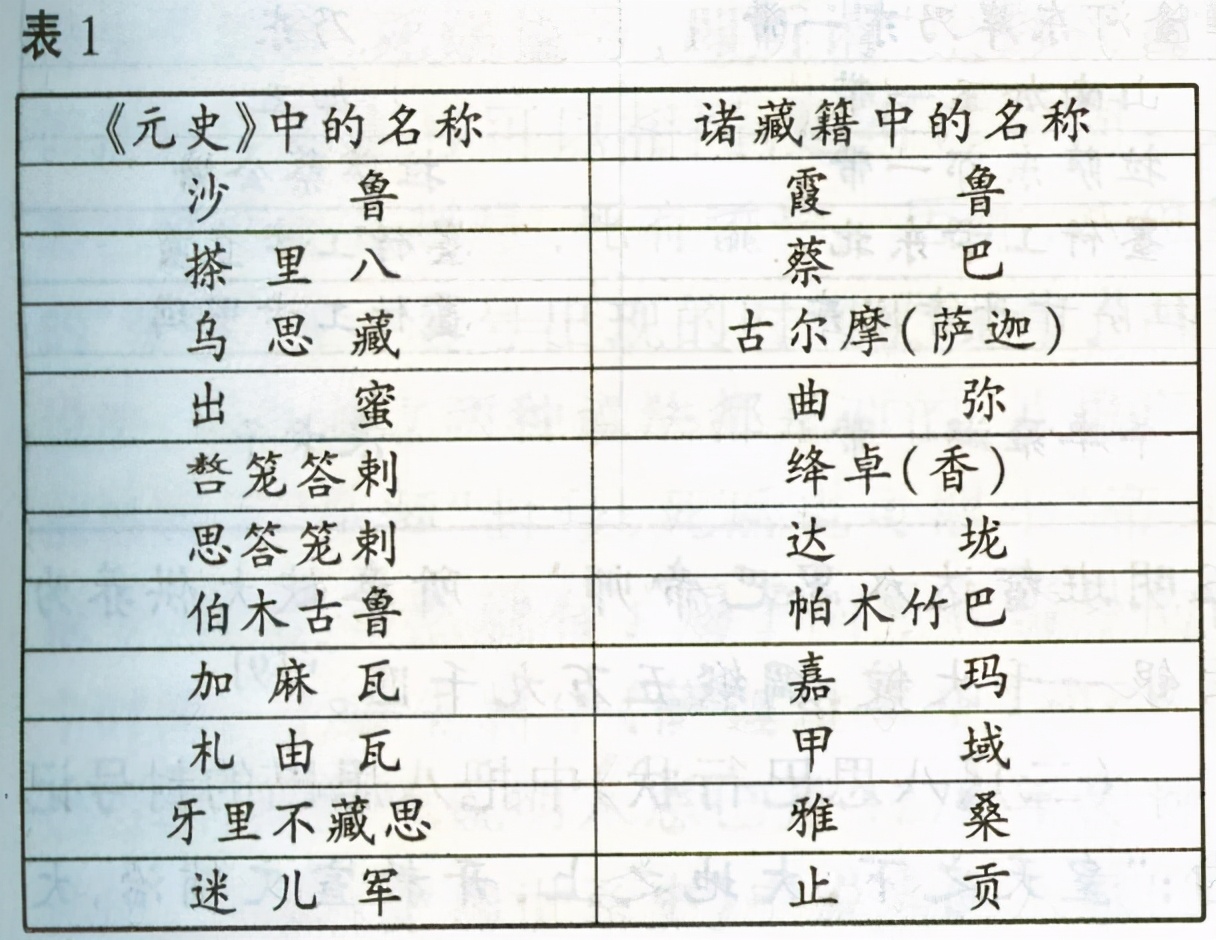 表1
《元史》中的名称 诸藏籍中的名称
沙鲁 霞鲁
搽里八 蔡巴
乌思藏 古尔摩(萨迦)
出蜜 曲弥
嶅笼答剌 绛卓(香)
思答笼剌 达垅
伯木古鲁 帕木竹巴
加麻瓦 嘉玛
札由瓦 甲域
牙里不藏思 雅桑
迷儿军 止贡